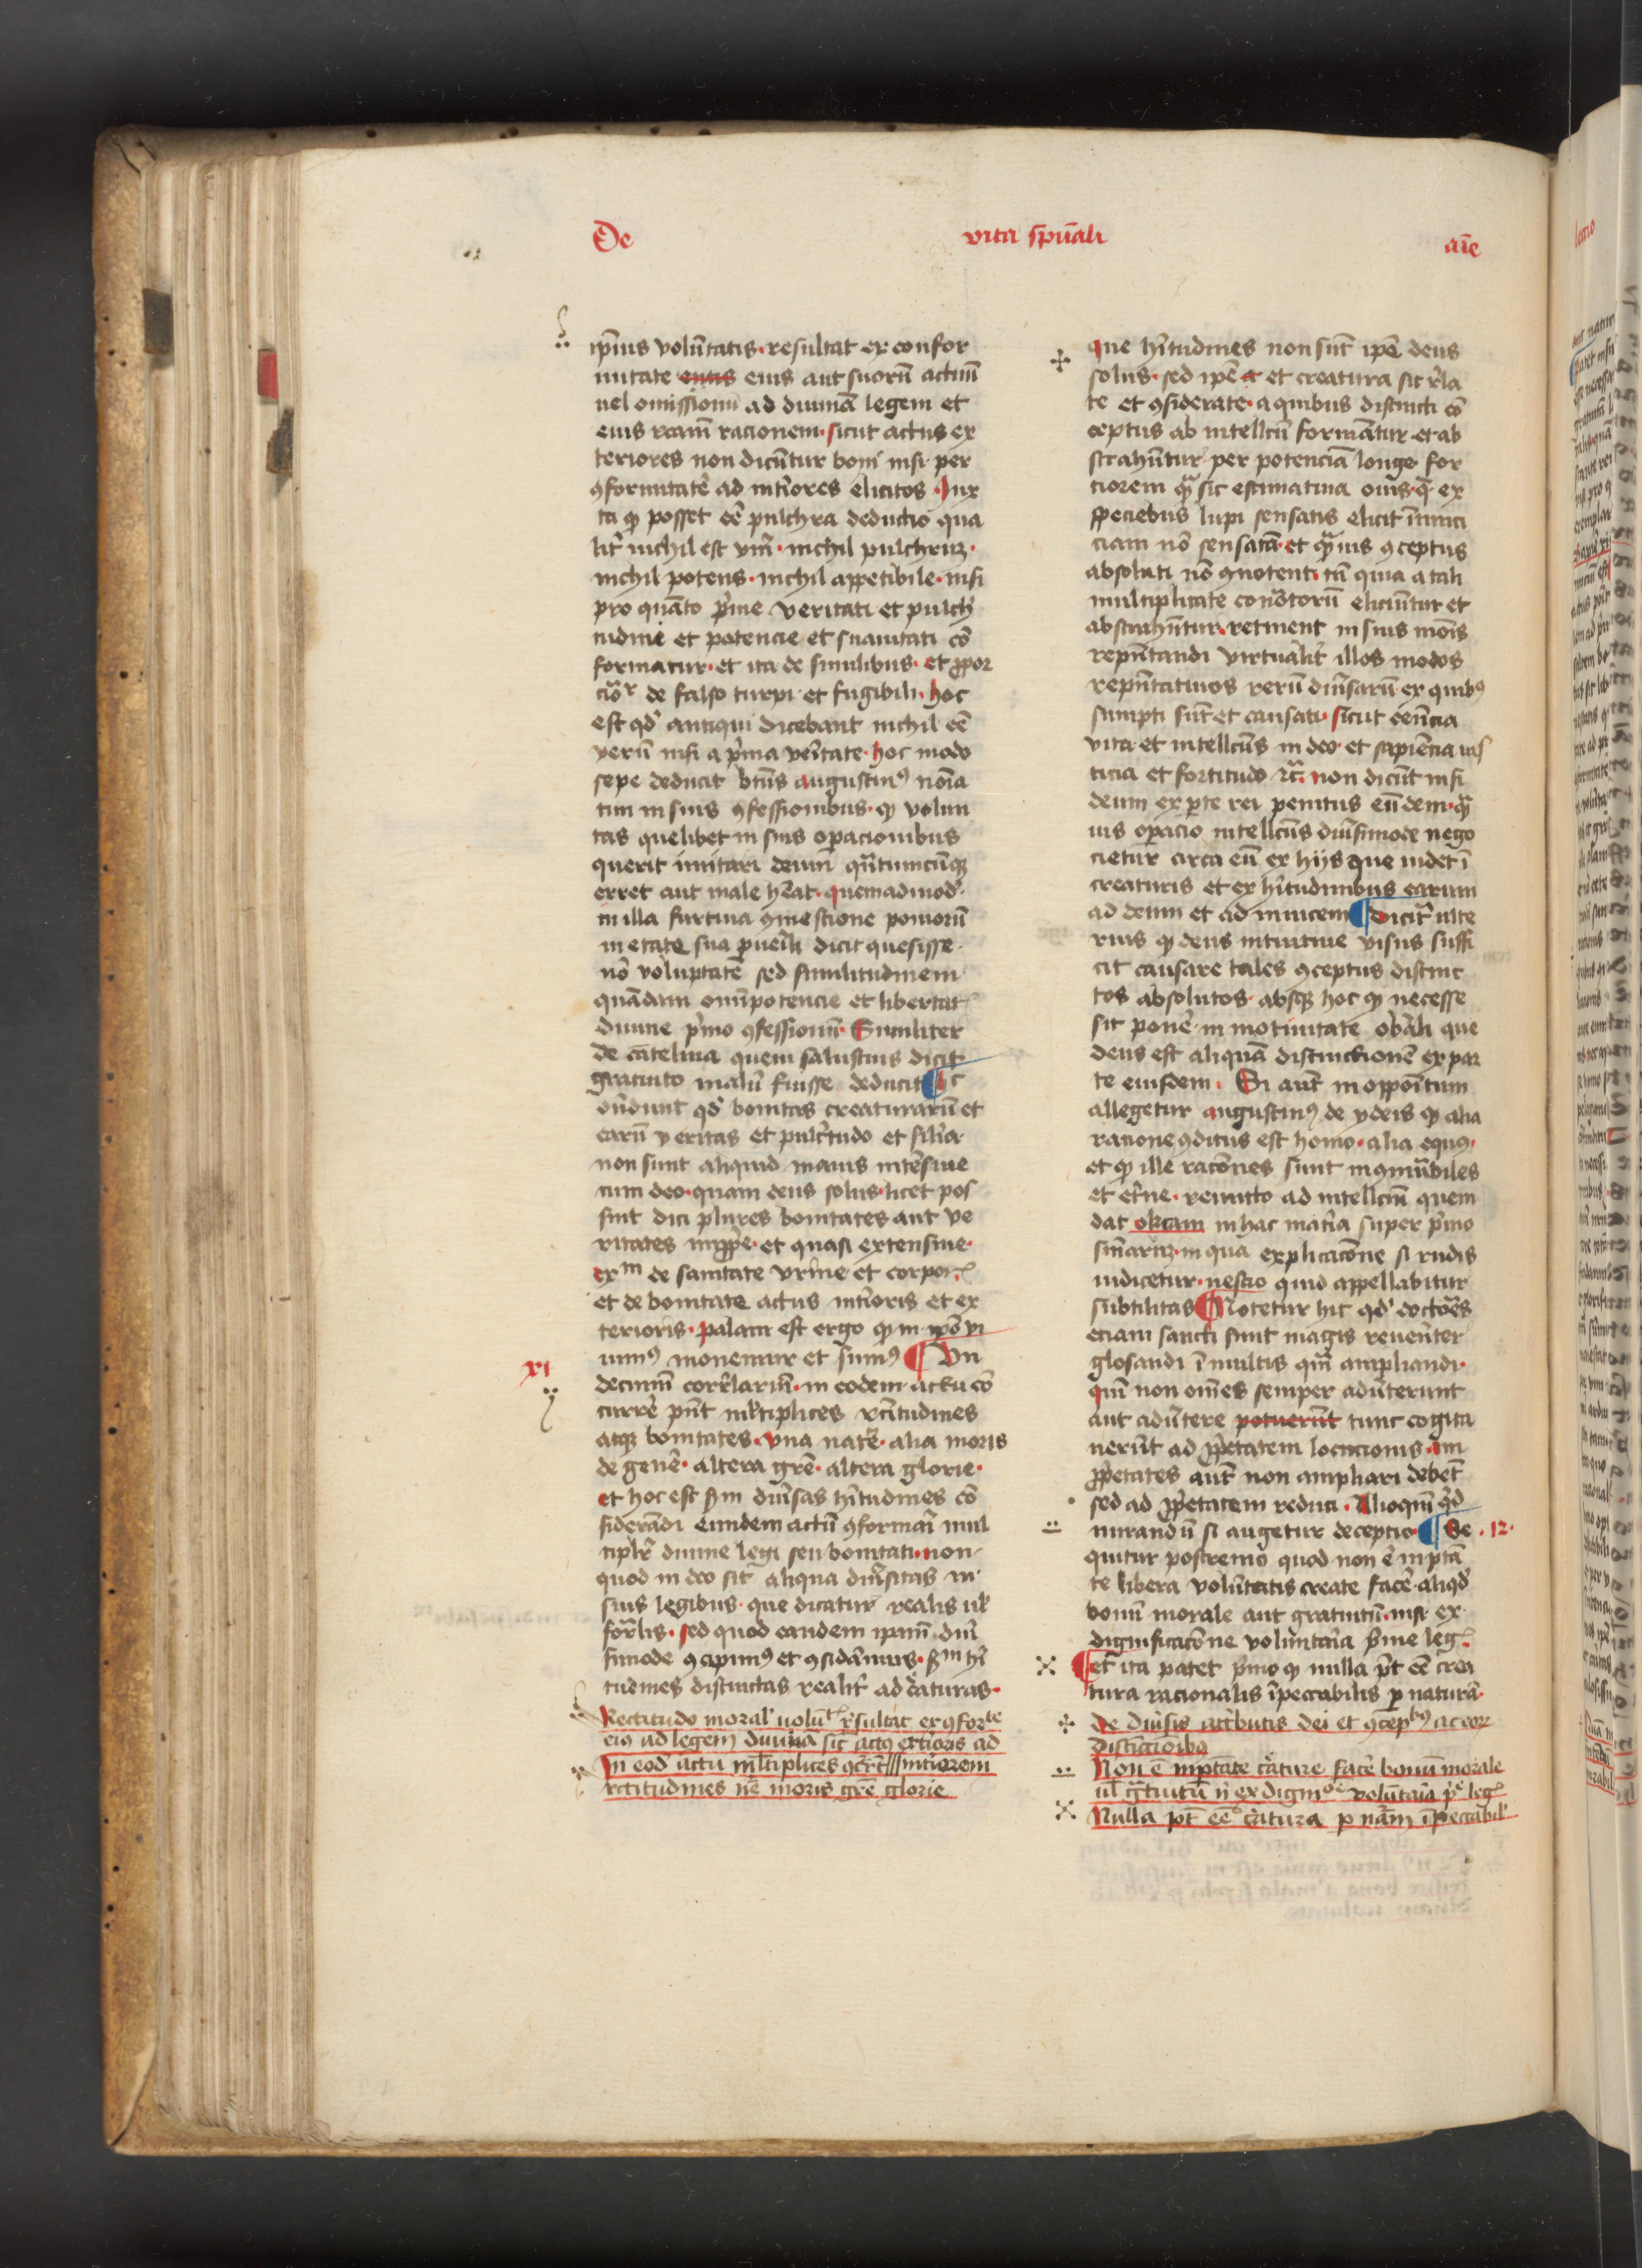 De vita sp̄uāli aīe
ip̄ius volūtatis · resultat ex confor
mitate entis eius aut suorū actuū
uel omissionū ad diuinā legem et
eius rcām racionem · sicut actus ex
teriores non dicūtur boni nisi per
ꝯformitatē ad int̄iores elicitos · Iux
ta qꝫ posset eē pulchra deductio qua
lit̄ nichil est vm̄ · nichil pulchrūꝫ ·
nichil potens · nichil appetibile · nisi
pro quāto p̄me veritati et pulch̄
tudini et potencie et suauitati cō
formatur · et ita de similibus · et ꝓpor
cōʳ de falso turpi · et fugibili · hoc
est qd̄ antiqui dicebant nichil eē
verū nisi a p̄ma ūitate · hoc modo
sepe deducit bt̄us augustinꝰ noīa
tim in suis ꝯfessionibus · qꝫ volun
tas quelibet in suis opacionibus
querit imitari deum qn̄tumcūqꝫ
erret aut male h̄eat · quemadmod̄
in illa furtiua ꝯmestione pomorū
in etate sua pueīli dicit quesisse ·
nō voluptatē sed similitudinem
quādam omīpotencie et libertatꝭ
diuine p̄mo ꝯfessionū · Similiter
de catelina quem salustius dicit
gratuito malū fuisse deducit ¶ hc
on̄dunt qd̄ bonitas creaturarū et
earū veritas et pulc̄tudo et sil̄ia
non sunt aliquid maius intēsiue
cum deo · quam deus solus · licet pos
sint dici plures bonitates aut ve
ritates imꝓpe · et quasi extensiue ·
exᵐ de sanitate vrine et corporꝭ
et de bonitate actus int̄ioris et ex
terioris · palam est ergo qꝫ in ipō vi
uimꝰ monemur et sumꝰ ¶ Vn
xi
decimū corr̄larīu · in eodem actu cō
currē pn̄t mltiplices rc̄itudines
atqꝫ bonitates · vna nat̄e · alia moris
de genē · altera grē · altera glorie ·
et hoc est ẜm diūsas h̄itudines cō
siderādi eundem actū ꝯformarī mul
tiplr̄ diuine legi seu bonitati · non
quod in deo sit aliqua diūsitas in
suis legibus · que dicatur realis ul̄
for̄lis · sed quod eandem ipām diū
simode ꝯcipimꝰ et ꝯsidāmus · ẜᵐ h̄i
tudines distinctas realit̄ ad c̄aturas ·
Rectitudo moral̄ uolūtꝭ r̄sultat ex ꝯforᵗᵉ
eiꝰ ad legem diuinā sic̄ actꝰ ext̄ioris ad
int̄iorem
In eod̄ actu mltiplices ꝯcr̄rēt
rctitudines nē moris grē glorie
que h̄itudines non sūt ipē deus
solus · sed ipē et creatura sit r̄la
te et ꝯsiderate · a quibus distincti cō
ceptus ab intellcū formātur et ab
strahūtur per potenciā longe for
ciorem qᷓ sic estimatiua ouis · q̄ ex
speciebus lupi sensatis elicit inimi
ciam nō sensatā · et qᷓuis ꝯceptus
absoluti nō ꝯnotent · tn̄ quia a tali
multiplicitate con̄otorū eliciūtur et
abstrahūtur · retinent in suis mōis
repn̄tandi virtualit̄ illos modos
repn̄tatiuos rerū diūsarū ex quibꝰ
sumpti sūt et causati · sicut eēncia
vita et intellcūs in deo · et sapiēcia ius
ticia et fortitudo ⁊c̄ · non dicūt nisi
deum ex pte rei penitus eūdem · qᷓ
uis opacio intellcūs diūsimode nego
cietur circa eū ex hijs que uidet ī
creaturis et ex h̄itudinibus earum
ad deum et ad inuicem ¶ Dicit̄ ulte
rius qꝫ deus intuitiue visus suffi
cit causare tales ꝯceptus distinc
tos absolutos · absqꝫ hoc qꝫ necesse
sit ponē in motiuitate obiāli que
deus est aliquā distinctionē ex par
te eiusdem · Si aūt in oppōitum
allegetur augustinꝰ de ydeis qꝫ alia
racione ꝯditus est homo · alia equꝰ ·
et qꝫ ille racōnes sunt inꝯmūbiles
et et̄ne · remitto ad intellcm̄ quem
dat okcam in hac mat̄ia super p̄mo
sn̄iarūꝫ · in qua explicacōne si rudis
iudicetur · nescio quid appellabitur
subtilitas ¶ Notetur hic qd̄ doctōes
eciam sancti sunt magis reuent̄er
glosandi ī multis qm̄ ampliandi ·
qm̄ non omēs semper adūterunt
aut adūtere potuerūt tunc cogita
uerūt ad ꝓpietatem locucionis · im
ꝓpietates aūt non ampliari debēt
sed ad ꝓpietatem reduci · Alioqm̄ qd̄
mirandū si augetur deceptio ¶ Se · 12 ·
quitur postremo quod non ē in ptā
te libera volūtatis create facē aliqd̄
bonū morale aut gratuitū · nisi ex
dignificacōne voluntaīa p̄me legꝭ
¶ et ita patet p̄mo qꝫ nulla p̄t eē crea
tura racionalis īpeccabilis p naturā ·
De diūsis att̄butis dei et ꝯcepᵇᵘˢ ac eorꝝ
distīctōibꝰ
Non ē in ptāte c̄ature facē bonū morale
ul̄ gᷓtuitū n̄ ex dignᵒⁿᵉ volūtaīa p̄ᵉ legꝭ
Nulla pt̄ eē c̄atura p nām īpeccabil̄